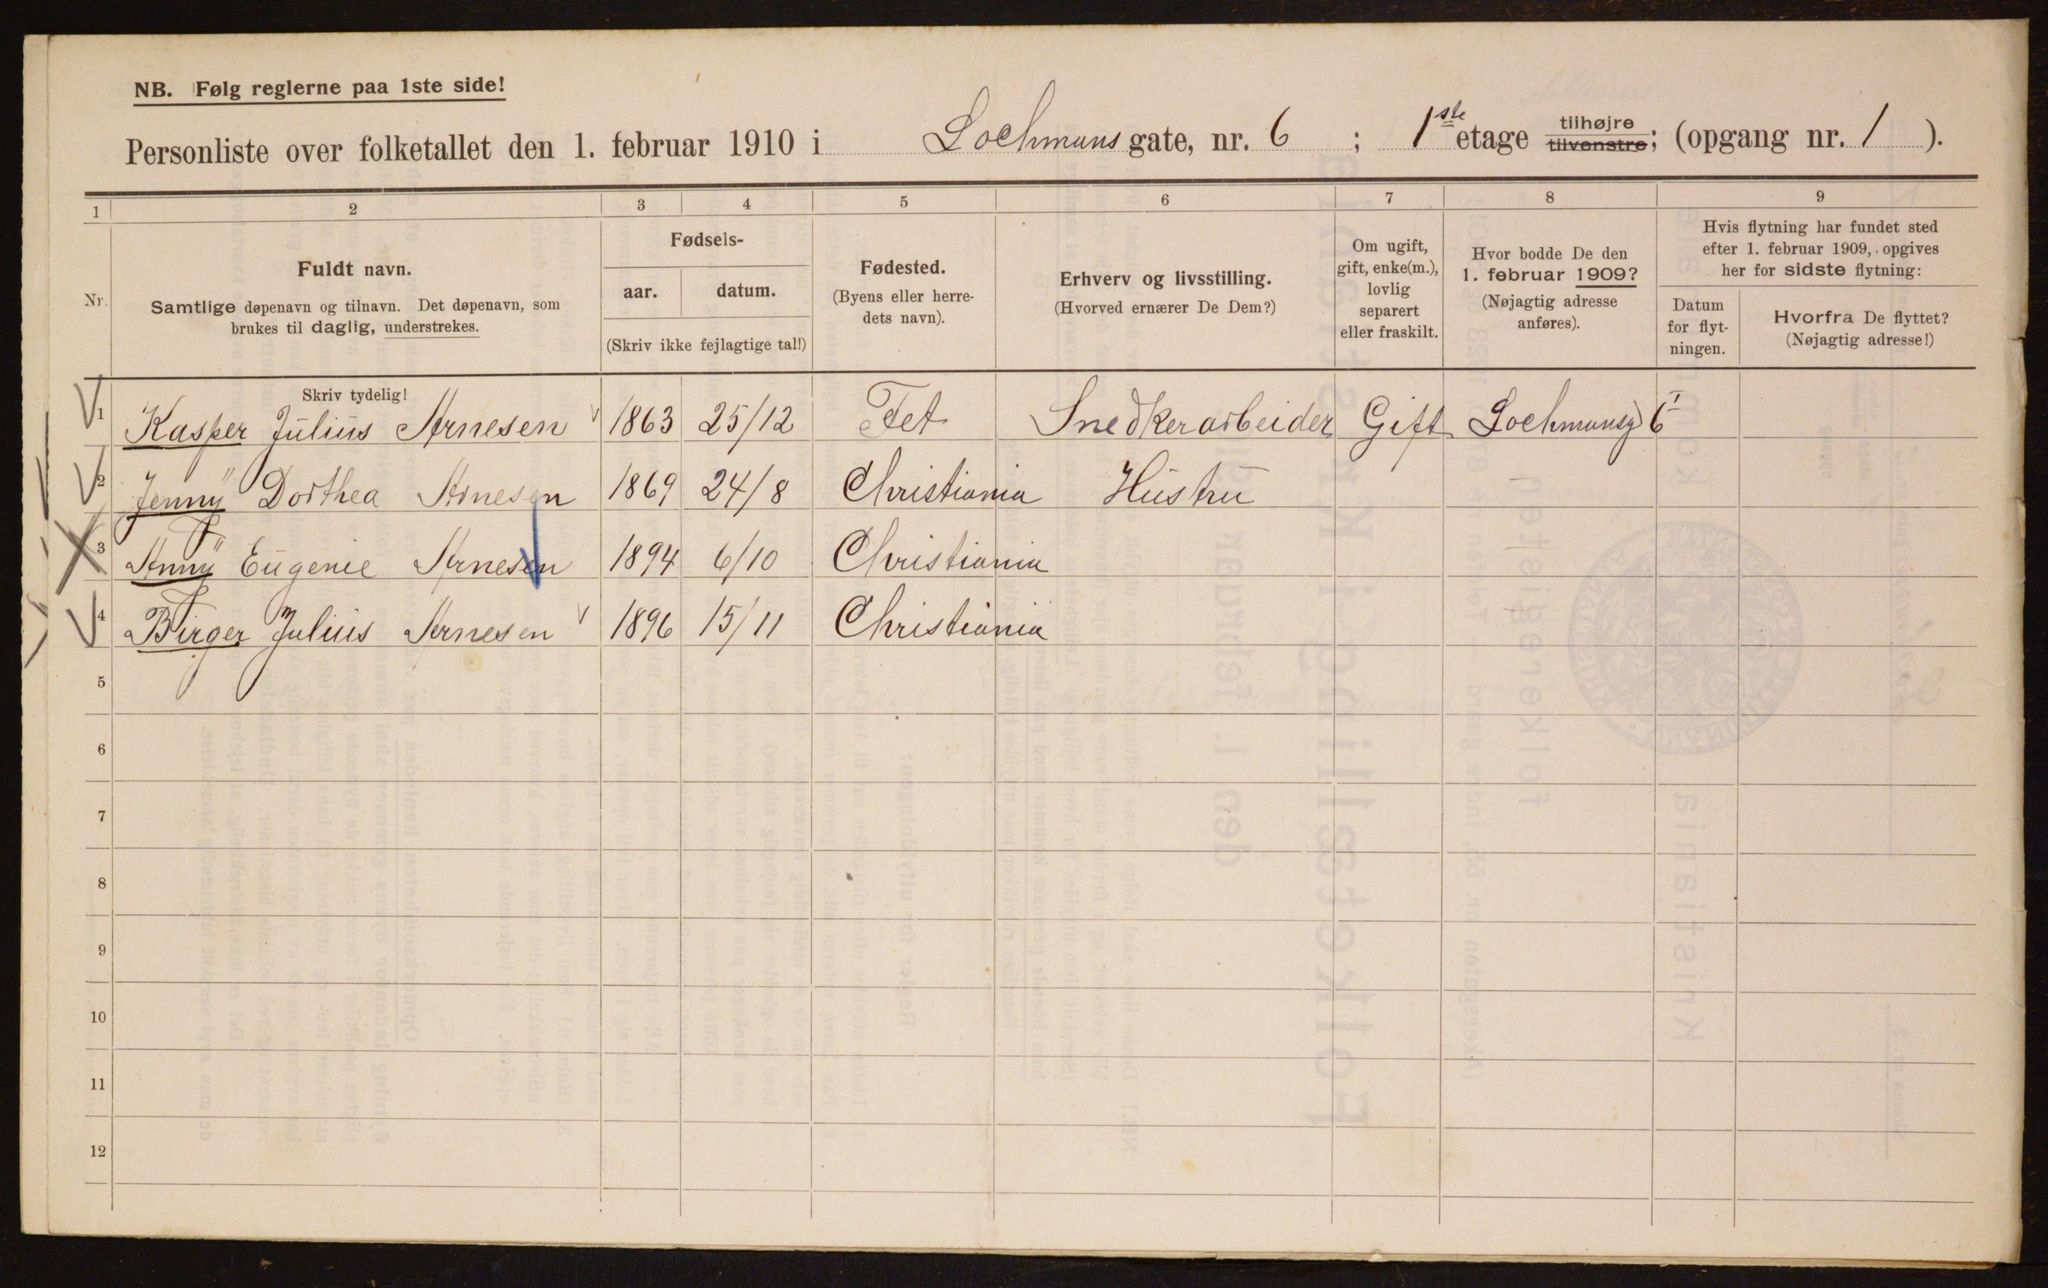 NB. Følg reglerne paa 1ste side!
Personliste over folketallet den 1. februar 1910 i Lochmans gate, nr. 6 ; 1ste etage tilhøjre tilvenstre; (opgang nr. 1 ).
1 2 3 4 5 6 7 8 9
Nr.
Fuldt navn.
Samtlige døpenavn og tilnavn. Det døpenavn, som
brukes til daglig, understrekes.
Fødsels-
aar. datum.
(Skriv ikke fejlagtige tal!)
Fødested.
(Byens eller herre-
dets navn).
Erhverv og livsstilling.
(Hvorved ernærer De Dem?)
Om ugift,
gift, enke(m.),
lovlig
separert
eller fraskilt.
Hvor bodde De den
1. februar 1909?
(Nøjagtig adresse
anføres).
Hvis flytning har fundet sted
efter 1. februar 1909, opgives
her for sidste flytning:
Datum
for flyt-
ningen.
Hvorfra De flyttet?
(Nøjagtig adresse!)
Skriv tydelig!
1 Kasper Julius Arnesen 1863 25/12 Fet Snedkerarbeider Gift Lochmansg 6 I
2 Jenny Dorthea Arnesen 1869 24/8 Christiania Hustru
3 Anny Eugenie Arnesen 1894 6/10 Christiania
4 Birger Julius Arnesen 1896 15/11 Christiania
5
6
7
8
9
10
11
12